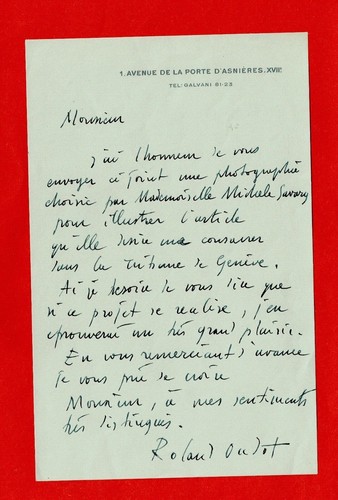 1. AVENUE DE LA PORTE D'ASNIÈRES. XVIIE
TEL: GALVANI 61-23
Monsieur
j'ai l'honneur de vous
envoyer ci joint une photographie
choisie par Mademoiselle Michele Savary
pour illustrer l'article
qu'elle désire me consacrer
dans la Tribune de Genève.
Ai je besoin de vous dire que
si ce projet se realise, j'en
éprouverai un très grand plaisir.
En vous remerciant d'avance
Je vous prie de croire
Monsieur, à mes sentiments
très distingués.
Roland Oudot